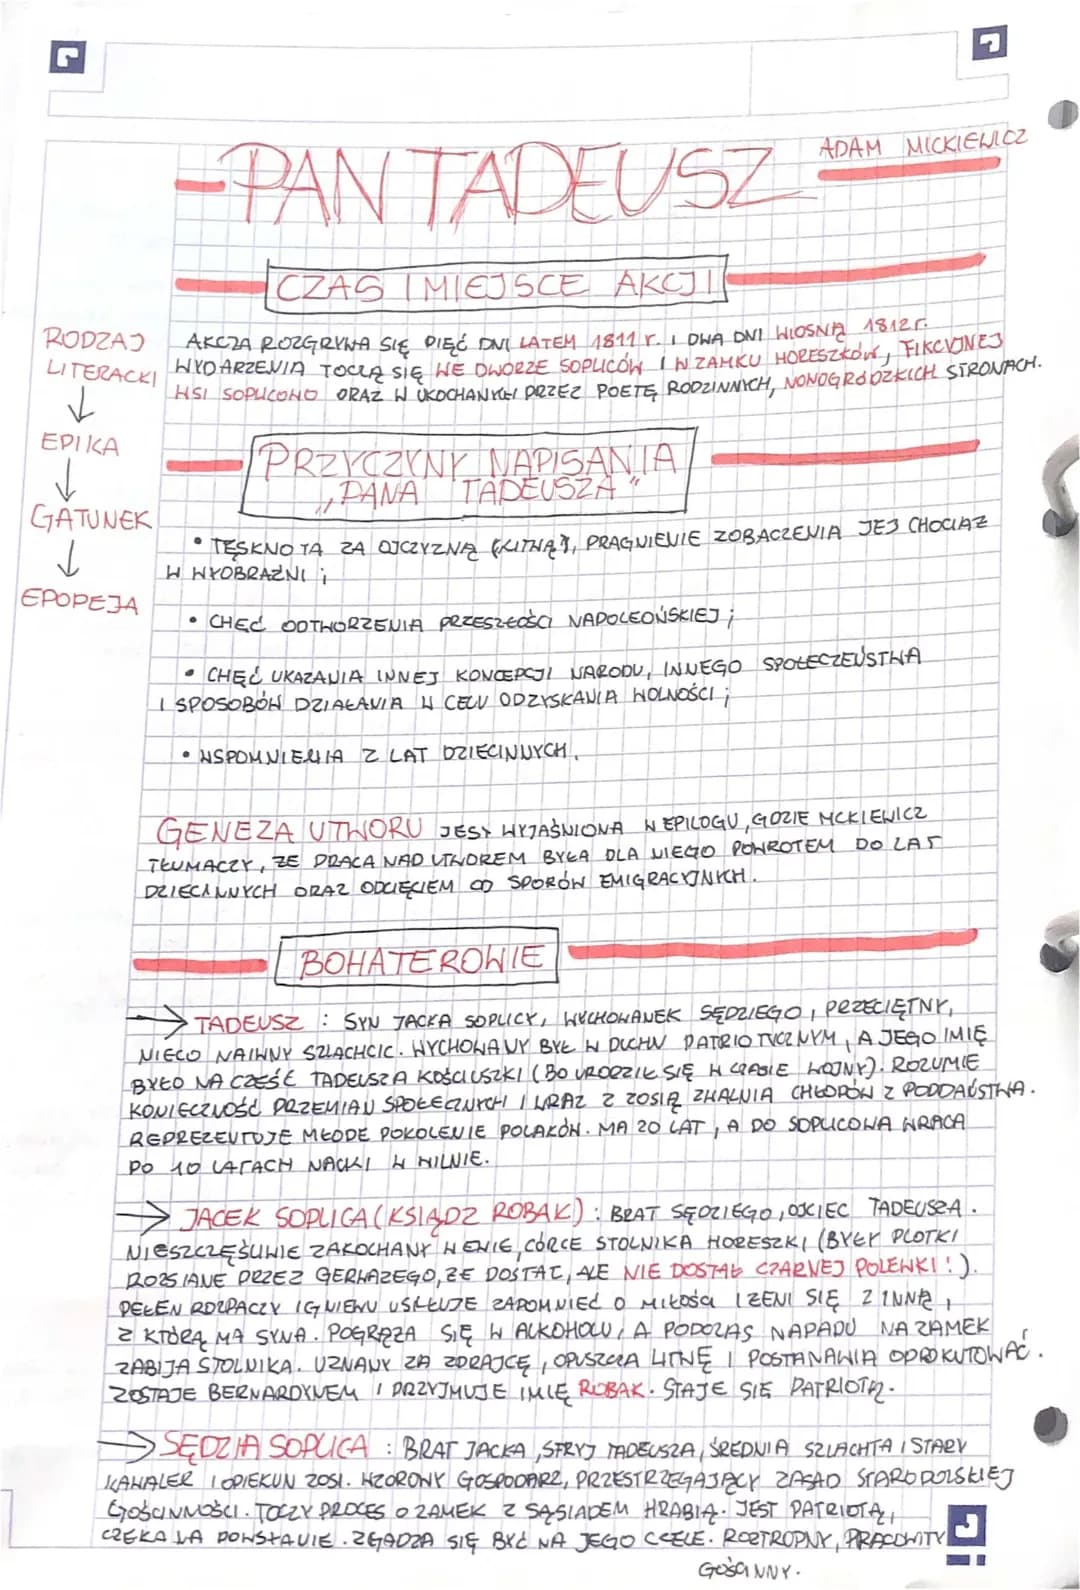 ADAM MICKIEWICZ
PAN TADEUSZ
CZAS I MIEJSCE AKCJI
RODZAJ
LITERACKI
EPIKA
GATUNEK
EPOPEJA
AKCZA ROZGRYWA SIĘ PIĘĆ DNI LATEM 1811 r. I DWA DNI WIOSNĄ 1812 r.
WYDARZENIA TOCZĄ SIĘ WE DWORZE SOPLICÓW I W ZAMKU HORESZKÓW, FIKCYJNEJ
WSI SOPLICOWO ORAZ W UKOCHANYCH PRZEZ POETĘ RODZINNYCH, NOWOGRÓDZKICH STRONACH.
PRZYCZYNY NAPISANIA
„PANA TADEUSZA"
• TĘSKNOTA ZA OJCZYZNĄ (LITWĄ), PRAGNIENIE ZOBACZENIA JEJ CHOCIAŻ
W WYOBRAŹNI ;
• CHĘĆ ODTWORZENIA PRZESZŁOŚCI NAPOLEOŃSKIEJ ;
• CHĘĆ UKAZANIA INNEJ KONCEPCJI NARODU, INNEGO SPOŁECZEŃSTWA
I SPOSOBÓW DZIAŁANIA W CELU ODZYSKANIA WOLNOŚCI ;
• WSPOMNIENIA Z LAT DZIECINNYCH.
GENEZA UTWORU JEST WYJAŚNIONA W EPILOGU, GDZIE MCKIEWICZ
TŁUMACZY, ŻE PRACA NAD UTWOREM BYŁA DLA NIEGO POWROTEM DO LAT
DZIECINNYCH ORAZ ODCIĘCIEM OD SPORÓW EMIGRACYJNYCH.
BOHATEROWIE
→ TADEUSZ : SYN JACKA SOPLICY, WYCHOWANEK SĘDZIEGO, PRZECIĘTNY,
NIECO NAIWNY SZLACHCIC. WYCHOWANY BYŁ W DUCHU PATRIOTYCZNYM, A JEGO IMIĘ
BYŁO NA CZEŚĆ TADEUSZA KOŚCIUSZKI (BO URODZIŁ SIĘ W CZASIE WOJNY). ROZUMIE
KONIECZNOŚĆ PRZEMIAN SPOŁECZNYCH I WRAZ Z ZOSIĄ ZWALNIA CHŁOPÓW Z PODDAŃSTWA.
REPREZENTUJE MŁODE POKOLENIE POLAKÓW. MA 20 LAT, A DO SOPLICOWA WRACA
PO 10 LATACH NAUKI W WILNIE.
→ JACEK SOPLICA (KSIĄDZ ROBAK) : BRAT SĘDZIEGO, OJCIEC TADEUSZA.
NIESZCZĘŚLIWIE ZAKOCHANY W EWIE, CÓRCE STOLNIKA HORESZKI (BYŁY PLOTKI
ROZSIANE PRZEZ GERWAZEGO, ŻE DOSTAŁ, ALE NIE DOSTAŁ CZARNEJ POLEWKI!).
PEŁEN ROZPACZY I GNIEWU USIŁUJE ZAPOMNIEĆ O MIŁOŚCI I ŻENI SIĘ Z INNĄ,
Z KTÓRĄ MA SYNA. POGRĄŻA SIĘ W ALKOHOLU, A PODCZAS NAPADU NA ZAMEK
ZABIJA STOLNIKA. UZNANY ZA ZDRAJCĘ, OPUSZCZA LITWĘ I POSTANAWIA ODPOKUTOWAĆ.
ZOSTAJE BERNARDYNEM I PRZYJMUJE IMIĘ ROBAK. STAJE SIĘ PATRIOTĄ.
→ SĘDZIA SOPLICA : BRAT JACKA, STRYJ TADEUSZA, ŚREDNIA SZLACHTA I STARY
KAWALER I OPIEKUN ZOSI. WZOROWY GOSPODARZ, PRZESTRZEGAJĄCY ZASAD STAROPOLSKIEJ
GOŚCINNOŚCI. TOCZY PROCES O ZAMEK Z SĄSIADEM HRABIĄ. JEST PATRIOTĄ,
CZEKA NA POWSTANIE. ZGADZA SIĘ BYĆ NA JEGO CZELE. ROZTROPNY, PRACOWITY
GOŚCINNY.